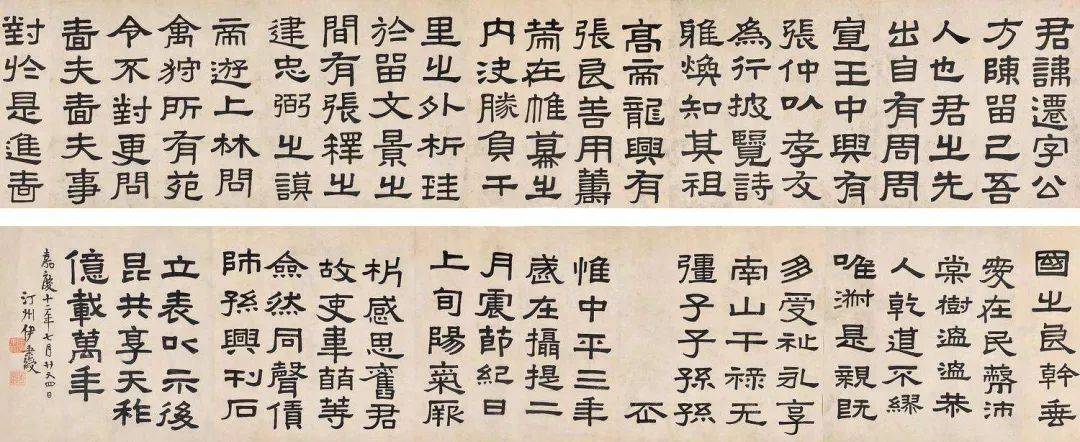 君諱遷字公
方陳留己吾
人也君之先
出自有周周
宣王中興有
張仲以孝友
為行披覽詩
雅煥知其祖
高帝龍興有
張良善用籌
策在帷幕之
內決勝負千
里之外析珪
於留文景之
間有張釋之
建忠弼之謨
帝遊上林問
禽狩所有苑
令不對更問
嗇夫嗇夫事
對於是進嗇
國之良幹垂
愛在民蔽沛
棠樹溫溫恭
人乾道不繆
唯淑是親既
多受祉永享
南山干祿无
疆子子孫孫
丕
惟中平三年
歲在攝提二
月震節紀日
上旬陽氣厥
析感思舊君
故吏韋萌等
僉然同聲賃
師孫興刊石
立表以示後
昆共享天祚
億載萬年
嘉慶十二年七月廿又四日
汀州伊秉綬